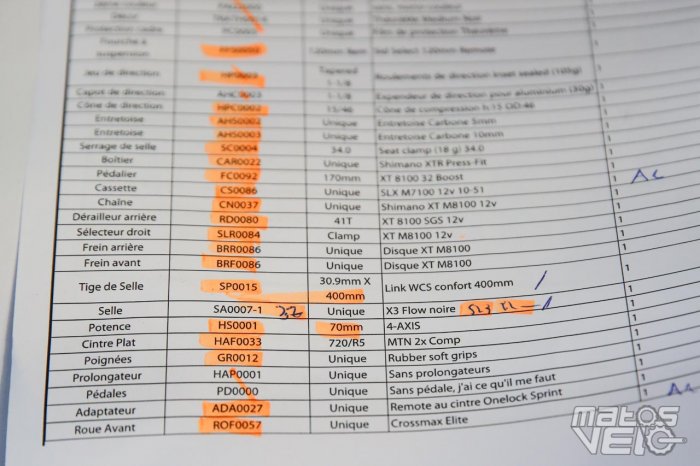 Protection cadre
Fourche à suspension
Jeu de direction HP0003 Tapered 1-1/8 Roulements de direction Inset sealed (108g) 1
Capot de direction AHC0003 1-1/8 Expendeur de direction pour aluminium (30g) 1
Cône de direction HPC0002 15/46 Cône de compression h:15 OD:46 1
Entretoise AHS0002 Unique Entretoise Carbone 5mm 1
Entretoise AHS0003 Unique Entretoise Carbone 10mm 1
Serrage de selle SC0004 34.0 Seat clamp (18 g) 34.0 1
Boîtier CAR0022 Unique Shimano XTR Press-Fit 1
Pédalier FC0092 170mm XT 8100 32 Boost 1
Cassette CS0086 Unique SLX M7100 12v 10-51 1
Chaîne CN0037 Unique Shimano XT M8100 12v 1
Dérailleur arrière RD0080 41T XT 8100 SGS 12v 1
Sélecteur droit SLR0084 Clamp XT M8100 12v 1
Frein arrière BRR0086 Unique Disque XT M8100 1
Frein avant BRF0086 Unique Disque XT M8100 1
Tige de Selle SP0015 30.9mm X 400mm Link WCS confort 400mm 1
Selle SA0007-1 Unique X3 Flow noire 1
Potence HS0001 70mm 4-AXIS 1
Cintre Plat HAF0033 720/R5 MTN 2x Comp 1
Poignées GR0012 Unique Rubber soft grips 1
Prolongateur HAP0001 Unique Sans prolongateurs 1
Pédales PD0000 Unique Sans pédale, j'ai ce qu'il me faut 1
Adaptateur ADA0027 Unique Remote au cintre Onelock Sprint 1
Roue Avant ROF0057 Unique Crossmax Elite
MATOS VELO